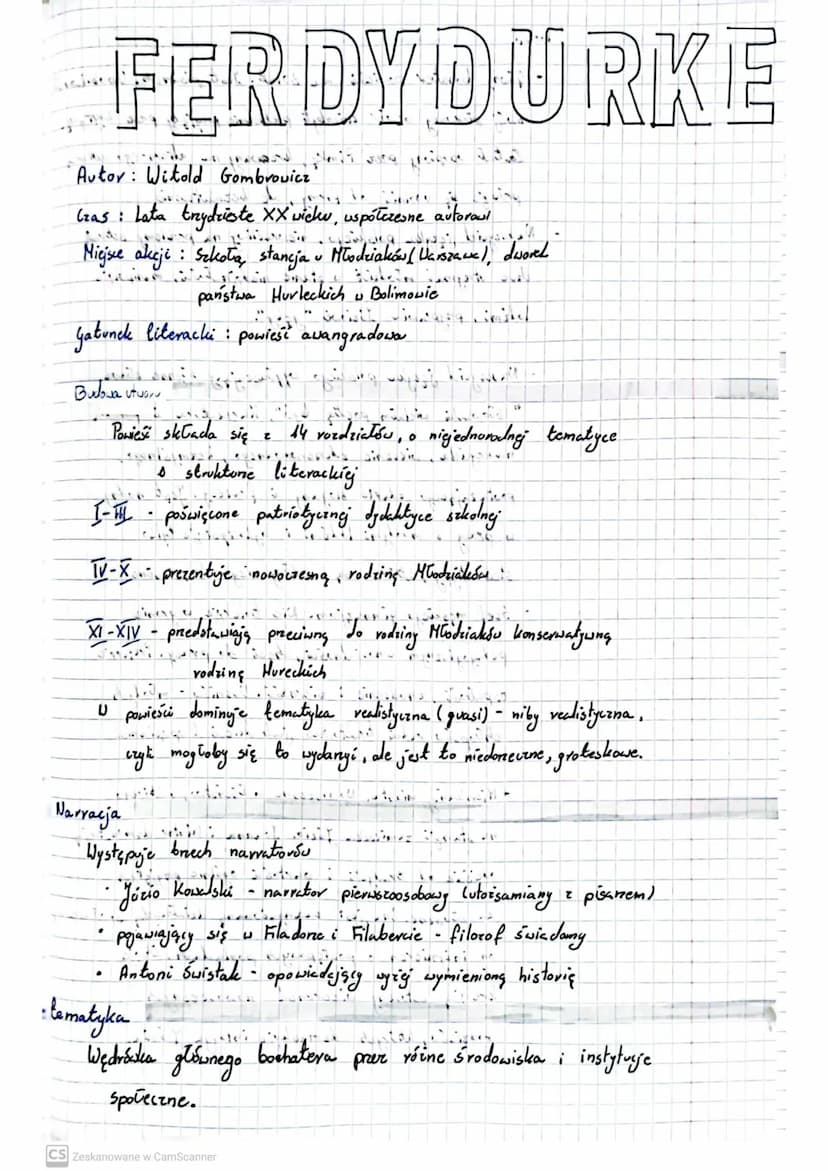 FERDYDURKE
Autor : Witold Gombrowicz
Czas : Lata trzydzieste XX wieku, współczesne autorowi
Miejsce akcji : Szkoła, stancja u Młodziaków (Warszawa), dworek
państwa Hurleckich w Bolimowie
Gatunek literacki : powieść awangradowa
Budowa utworu
Powieść składa się z 14 rozdziałów, o niejednorodnej tematyce
i strukturze literackiej
I-III - poświęcone patriotycznej dydaktyce szkolnej
IV-X - prezentuje nowoczesną rodzinę Młodziaków
XI-XIV - przedstawiają przeciwną do rodziny Młodziaków konserwatywną
rodzinę Hureckich
W powieści dominuje tematyka realistyczna (quasi) - niby realistyczna,
czyli mogłoby się to wydarzyć, ale jest to niedorzeczne, groteskowe.
Narracja
Występuje trzech narratorów
· Józio Kowalski - narrator pierwszoosobowy (utożsamiany z pisarzem)
• pojawiający się w Filadorze i Filabercie - filozof świadomy
• Antoni Świstak - opowiadający wyżej wymienioną historię
tematyka
Wędrówka głównego bochatera przez różne środowiska i instytucje
społeczne.
CS Zeskanowane w CamScanner